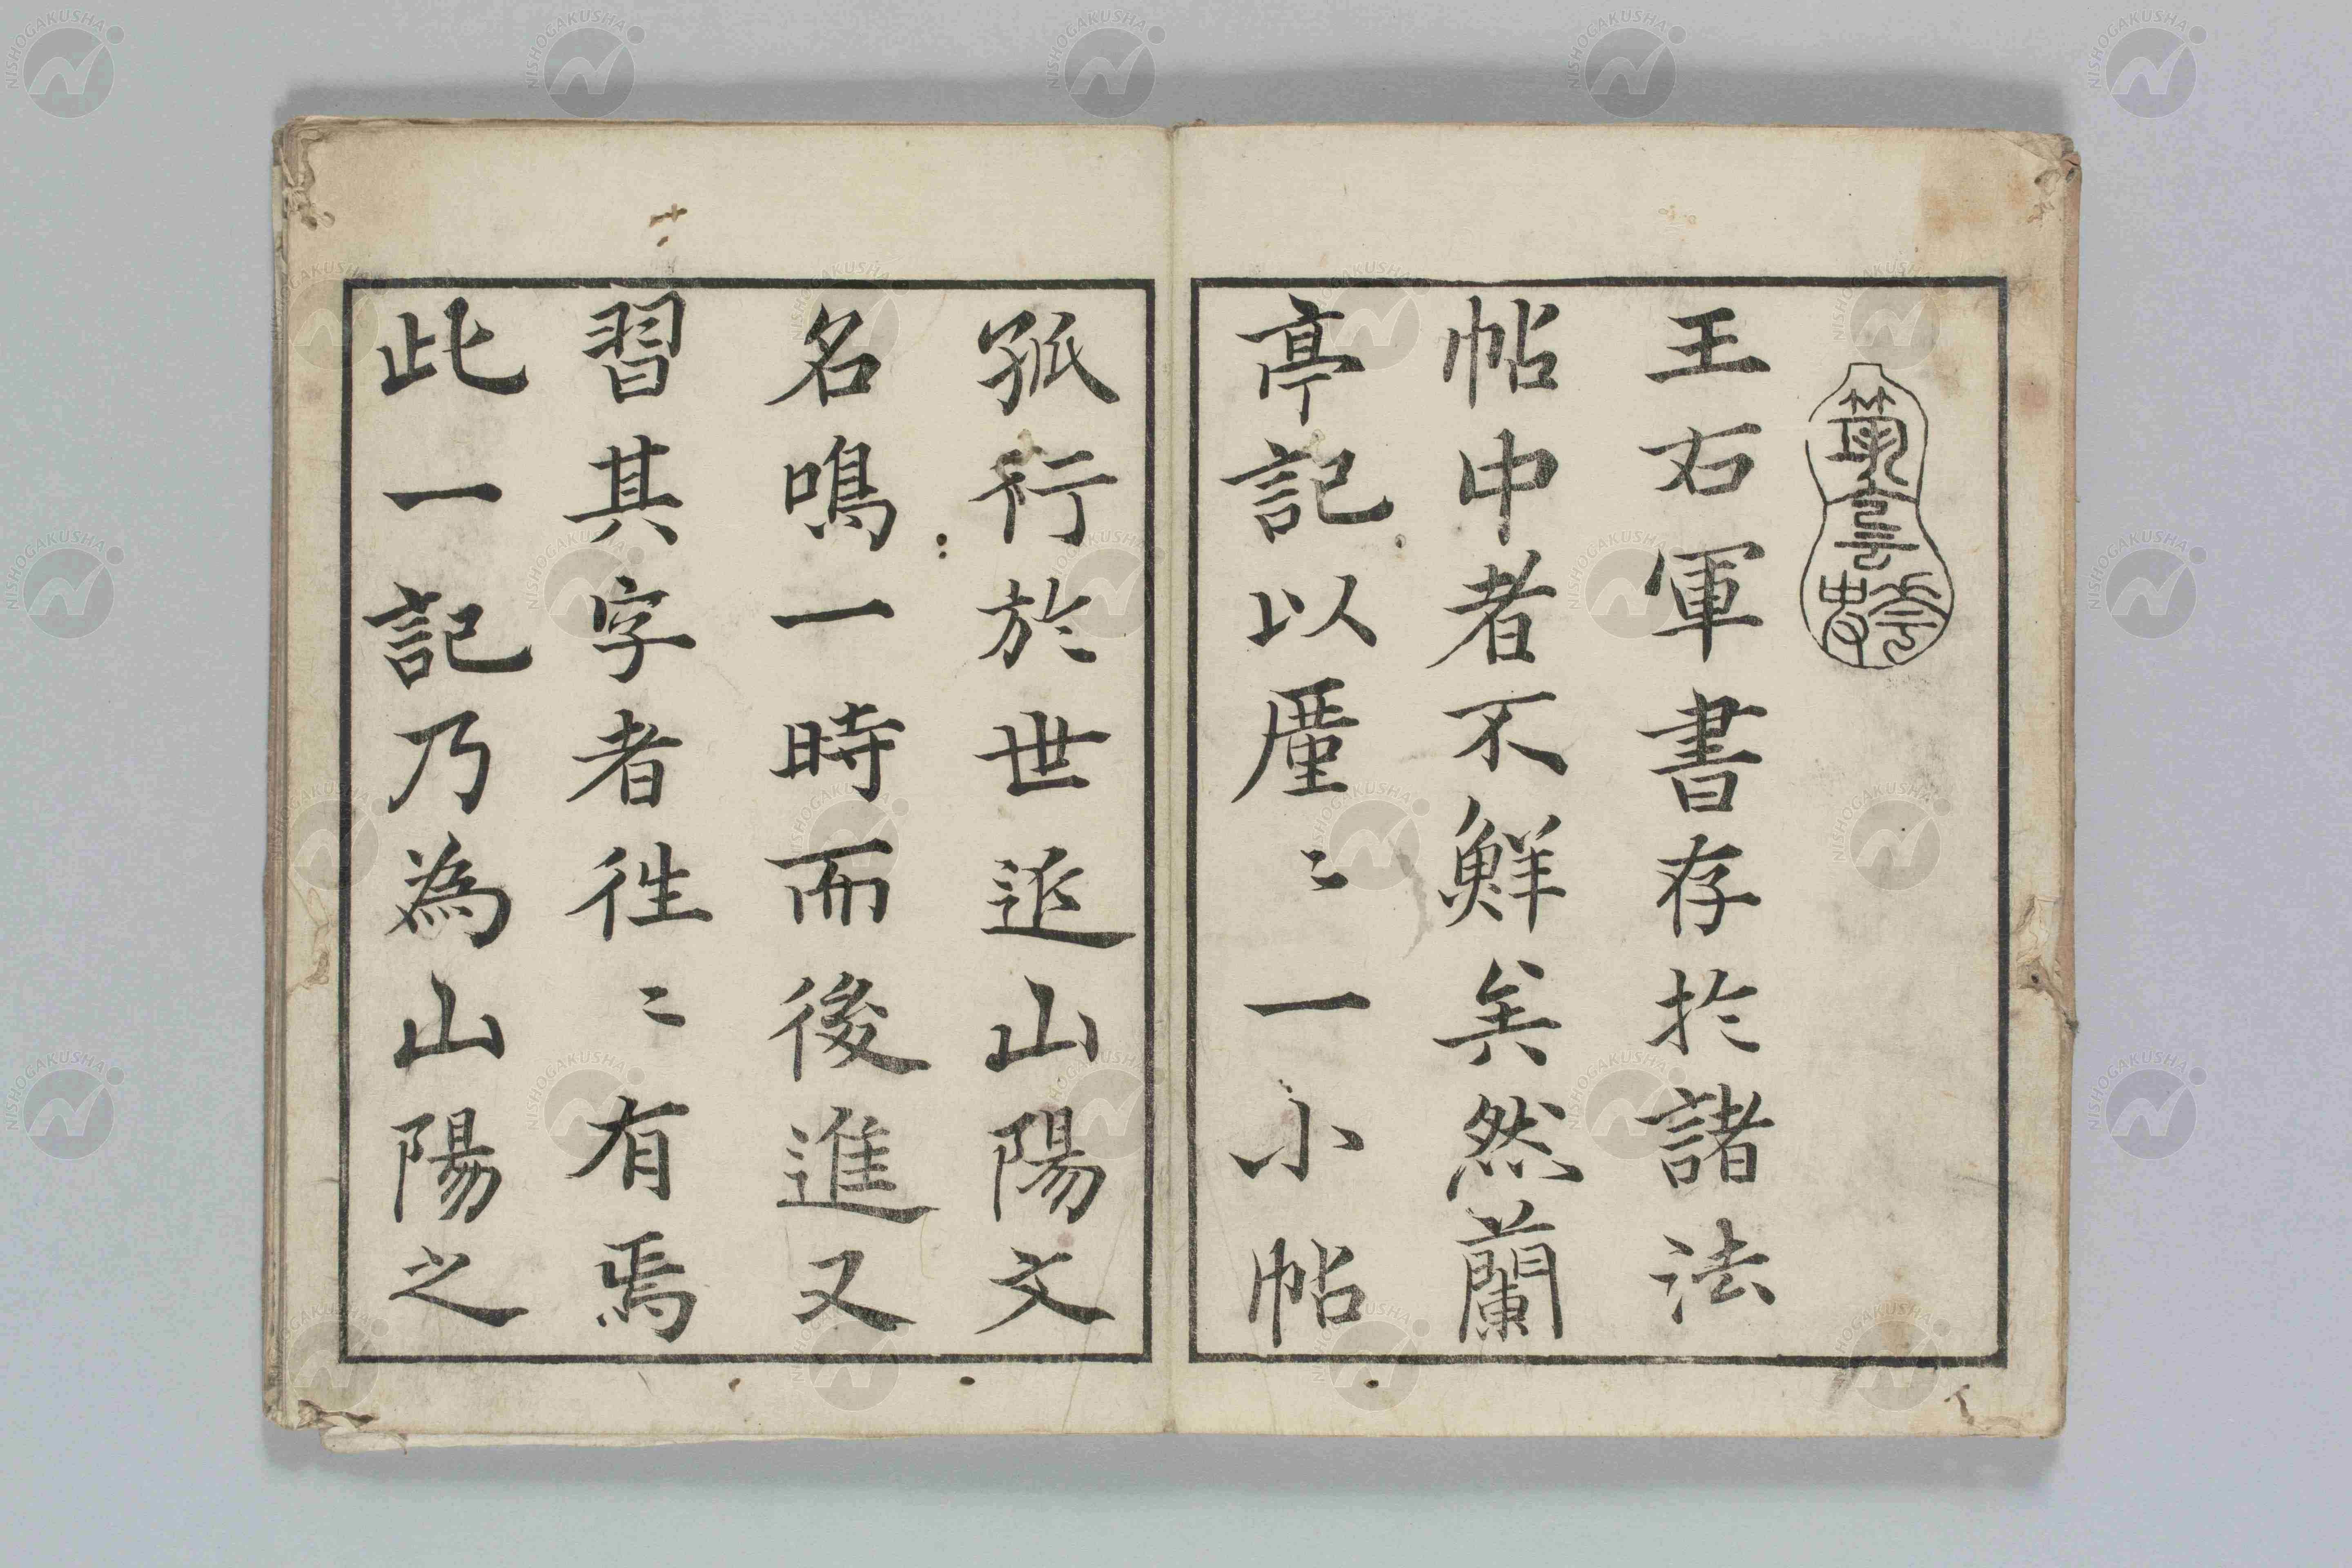 王右軍書存於諸法
帖中者不鮮矣然蘭
亭記以厪〻一小帖
孤行於世近山陽文
名鳴一時而後進又
習其字者徃〻有焉
此一記乃為山陽之
NISHOGAKUSHA